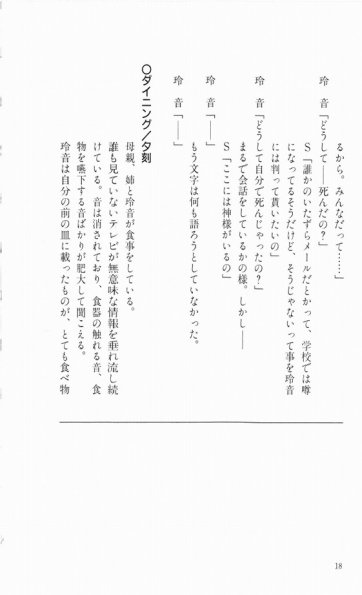 るから。みんなだって……」
玲　音「どうして――死んだの？」
S「誰かのいたずらメールだとかって、学校では噂
になってるそうだけど、そうじゃないって事を玲音
には判って貰いたいの」
玲　音「どうして自分で死んじゃったの？」
まるで会話をしているかの様。しかし――
S「ここには神様がいるの」
玲　音「――」
もう文字は何も語ろうとしていなかった。
玲　音「――」
〇ダイニング／夕刻
母親、姉と玲音が食事をしている。
誰も見ていないテレビが無意味な情報を垂れ流し続
けている。音は消されており、食器の触れる音、食
物を嚥下する音ばかりが肥大して聞こえる。
玲音は自分の前の皿に載ったものが、とても食べ物
18